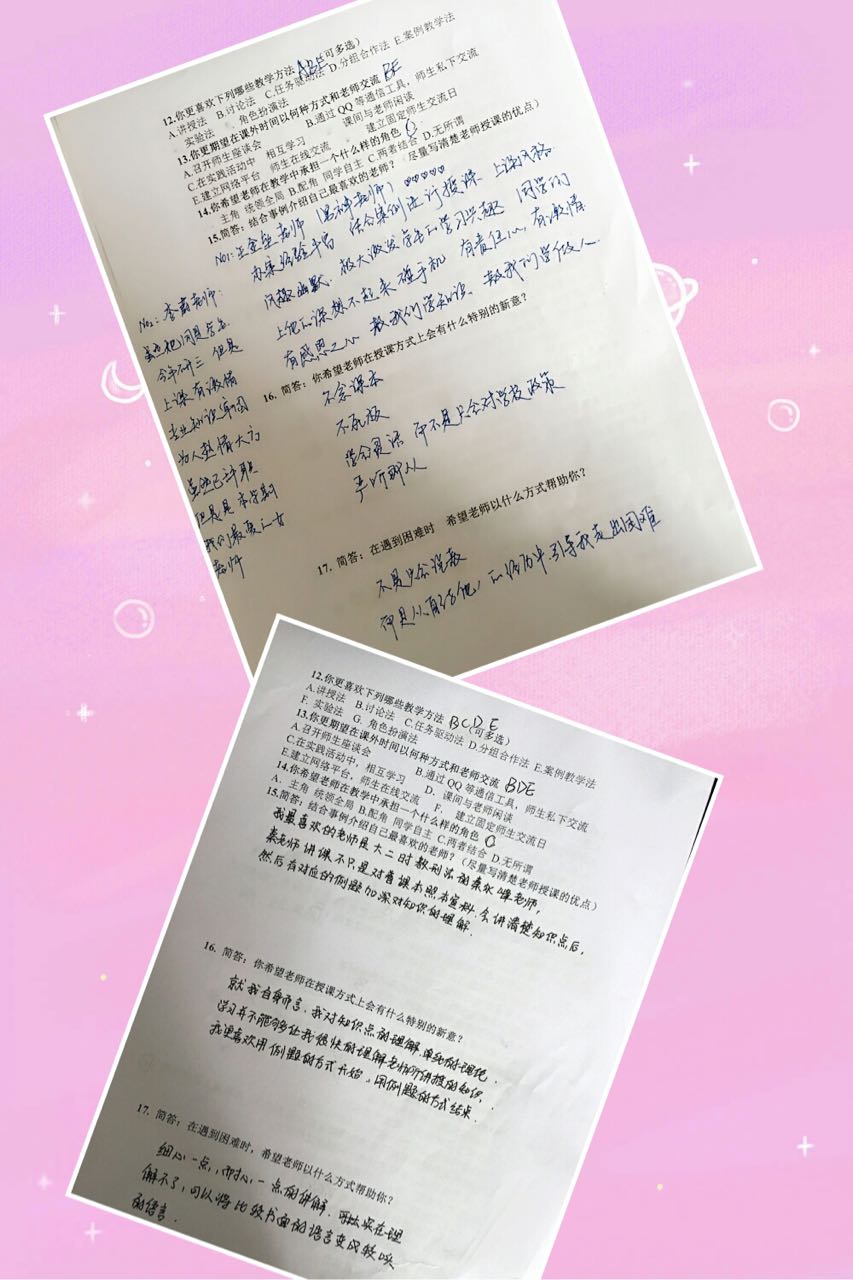 12.你更喜欢下列哪些教学方法 ABE (可多选)
A.讲授法 B.讨论法 C.任务驱动法 D.分组合作法 E.案例教学法
实验法 角色扮演法
13.你更期望在课外时间以何种方式和老师交流 BE
A.召开师生座谈会 B.通过QQ等通信工具,师生私下交流
C.在实践活动中 相互学习 课间与老师闲谈
E.建立网络平台 师生在线交流 建立固定师生交流日
14.你希望老师在教学中承担一个什么样的角色 C
主角 统领全局 B.配角 同学自主 C.两者结合 D.无所谓
15.简答:结合事例介绍自己最喜欢的老师? 尽量写清楚老师授课的优点)
No1: 老师(男神老师)♡♡♡♡♡
办案经验丰富 结合案例进行授课 上课风格
风趣幽默 极大激发学生的学习兴趣 同学们
上他的课想不起来碰手机 有责任心,有激情
有感恩之心 教我们学知识 教我们学做人.
No2: 李 老师:
今年研三 但是
上课有激情
专业知识牢固
为人热情大方
但是是本学期
我们最 之女
老师
16. 简答:你希望老师在授课方式上会有什么特别的新意?
不念课本
不死板
学会灵活 而不是只会对学校政策
严听那从
17. 简答:在遇到困难时 希望老师以什么方式帮助你?
不是只会说教
而是从自己(他)的经历中 引导我走出困难
12.你更喜欢下列哪些教学方法 BCDE (可多选)
A.讲授法 B.讨论法 C.任务驱动法 D.分组合作法 E.案例教学法
F. 实验法 G. 角色扮演法
13.你更期望在课外时间以何种方式和老师交流 BDE
A.召开师生座谈会 B.通过QQ等通信工具,师生私下交流
C.在实践活动中,相互学习 D. 课间与老师闲谈
E.建立网络平台,师生在线交流 F. 建立固定师生交流日
14.你希望老师在教学中承担一个什么样的角色 C
A. 主角 统领全局 B.配角 同学自主 C.两者结合 D.无所谓
15.简答:结合事例介绍自己最喜欢的老师?(尽量写清楚老师授课的优点)
我最喜欢的老师是大二时教刑法的秦 峰老师,
秦老师讲课不只是对着课本照本宣科.会讲清楚知识点后,
然后有对应的例题加深对知识的理解.
16. 简答:你希望老师在授课方式上会有什么特别的新意?
就我自身而言,我对知识点的理解.单纯的理论
学习并不能够让我很快的理解老师所讲授的知识.
我更喜欢用例题的方式开始,用例题的方式结束.
17. 简答:在遇到困难时,希望老师以什么方式帮助你?
细心一点,耐心一点的讲解. 实在理
解不了,可以将比较书面的语言变成较
的语言.